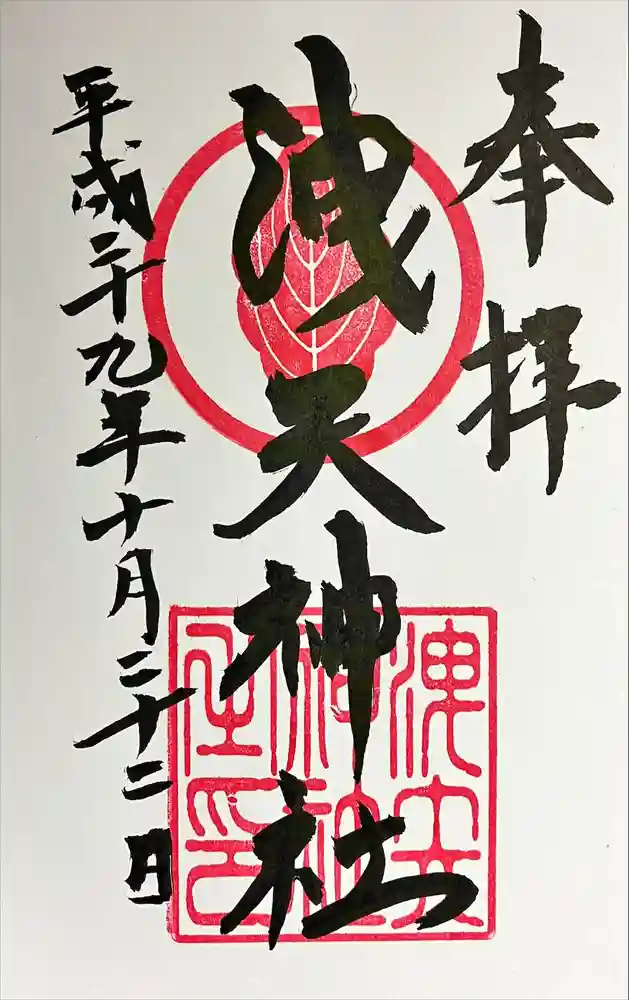 奉拝
洩天神社
平成二十九年十月二十二日
洩天
神社
印